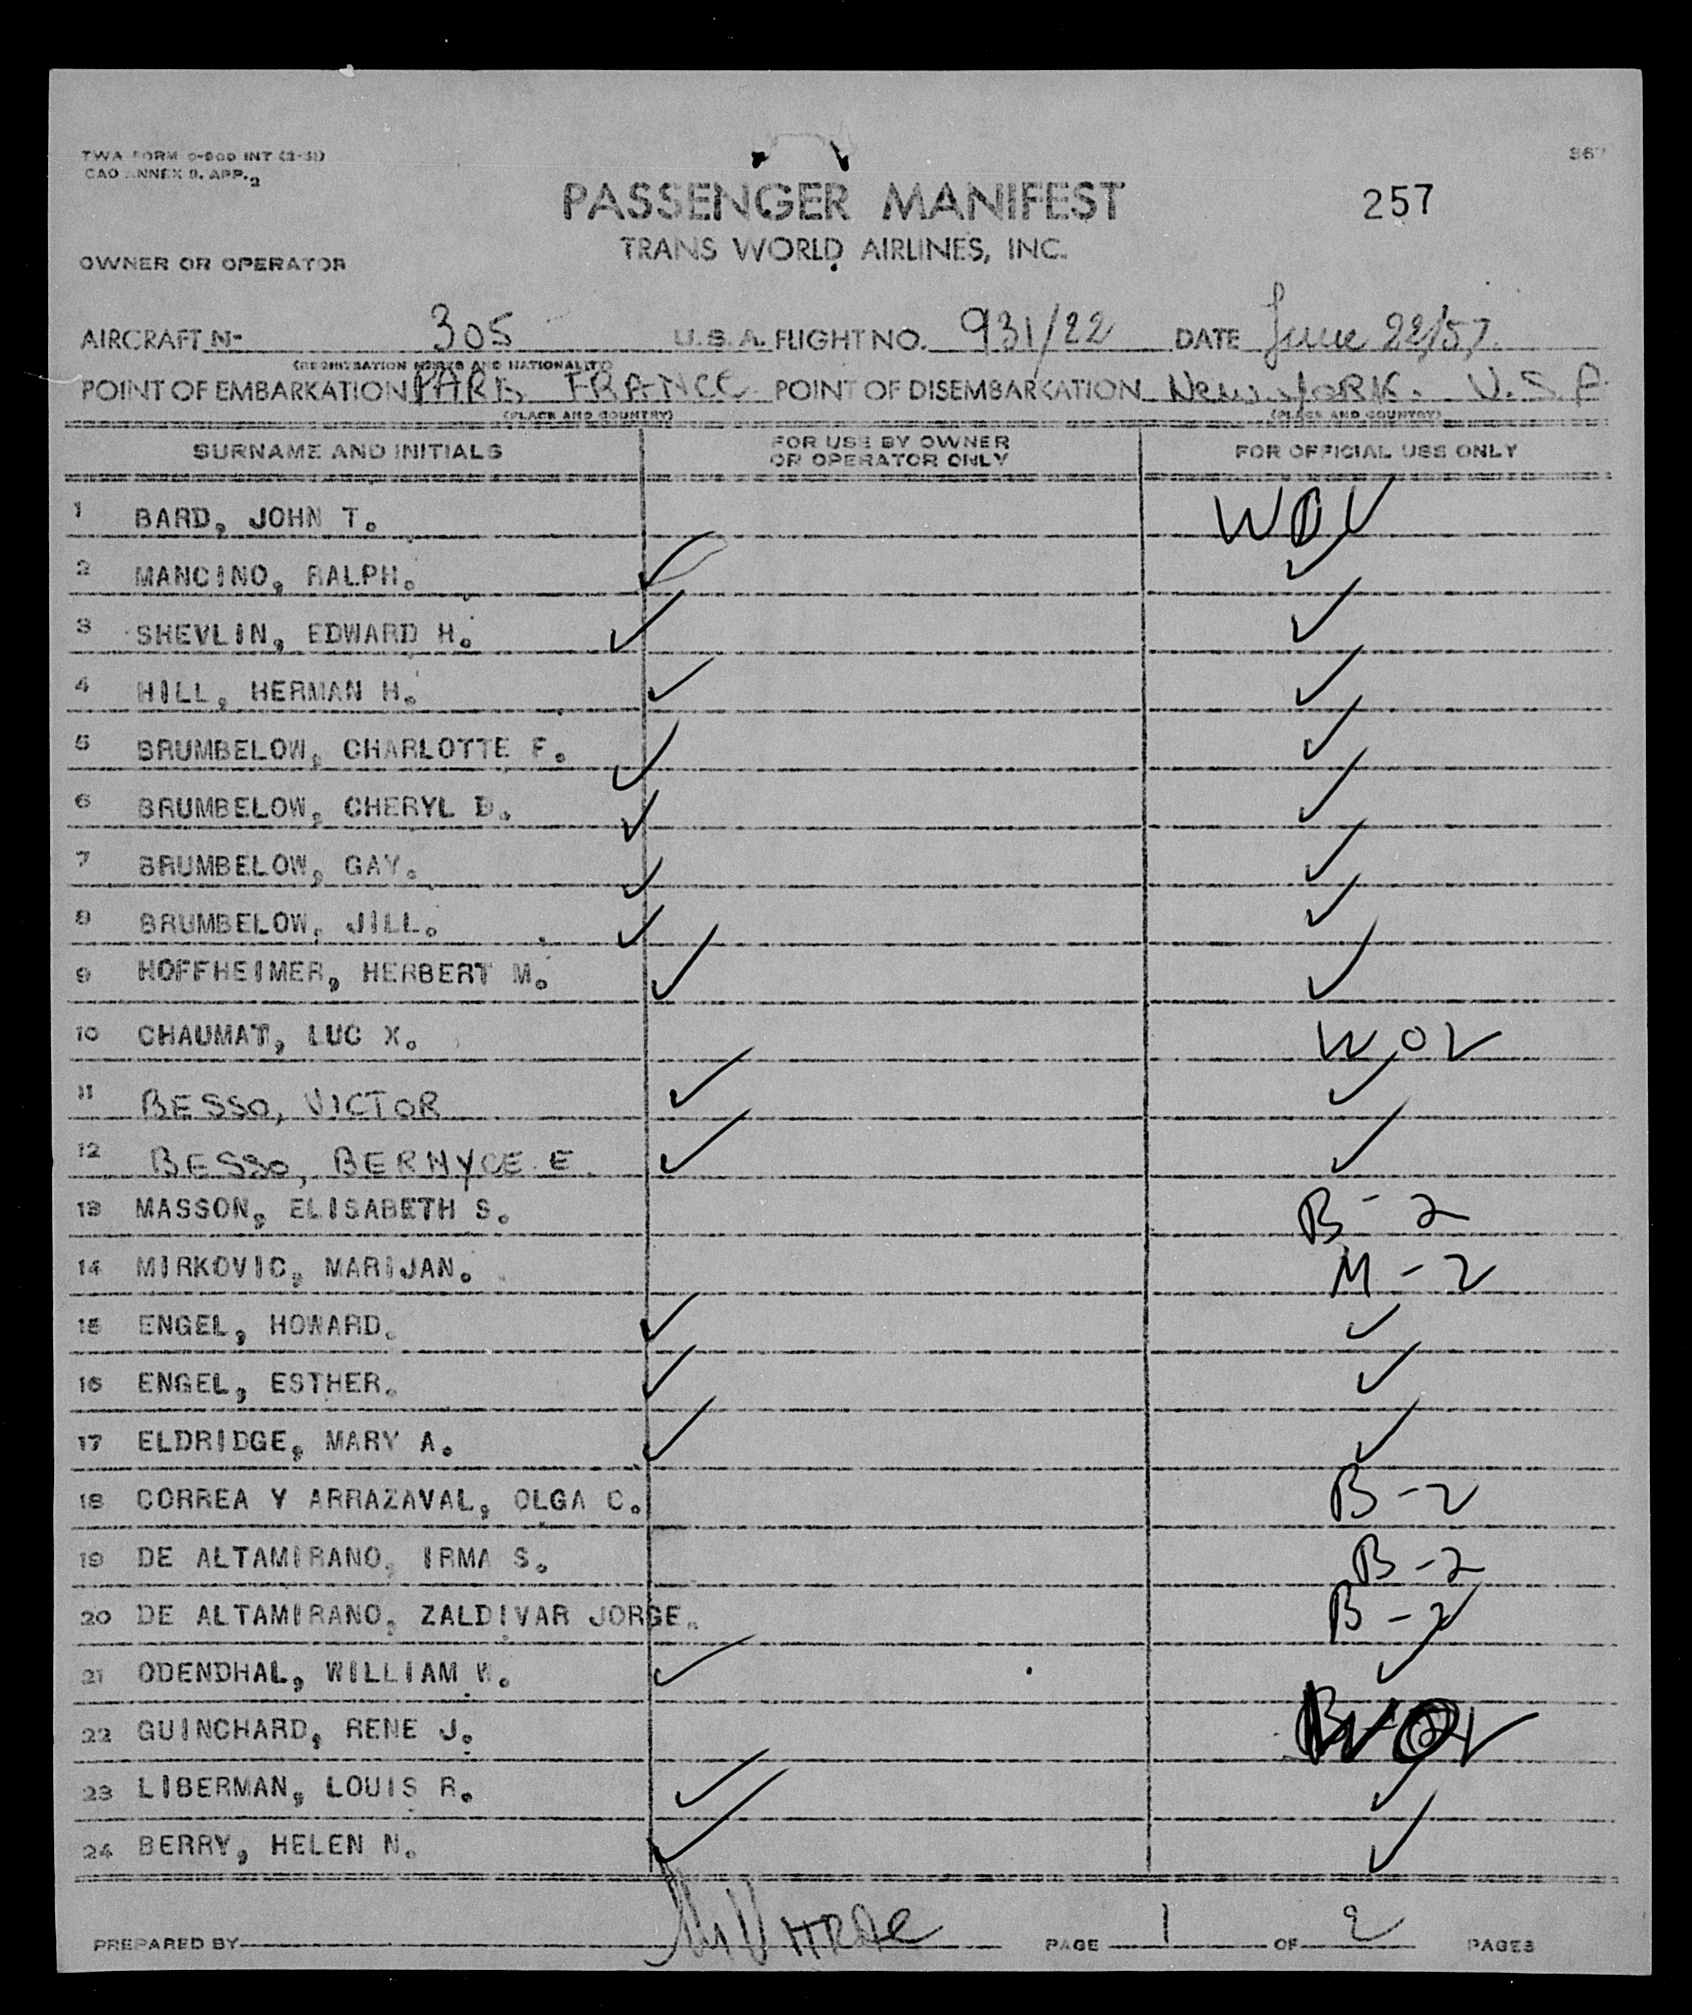 TWA FORM O-900 INT (2-51)
ICAO ANNEX 9, APP. 2
367
PASSENGER MANIFEST
257
TRANS WORLD AIRLINES, INC.
OWNER OR OPERATOR
AIRCRAFT N- 305 U.S.A. FLIGHT NO. 931/22 DATE June 22/57
(REGISTRATION MARKS AND NATIONALITY)
POINT OF EMBARKATION PARIS FRANCE POINT OF DISEMBARKATION New York. U.S.A.
(PLACE AND COUNTRY) (PLACE AND COUNTRY)
SURNAME AND INITIALS FOR USE BY OWNER OR OPERATOR ONLY FOR OFFICIAL USE ONLY
1 BARD, JOHN T.
2 MANCINO, RALPH. ✓ ✓
3 SHEVLIN, EDWARD H. ✓ ✓
4 HILL, HERMAN H. ✓ ✓
5 BRUMBELOW, CHARLOTTE F. ✓ ✓
6 BRUMBELOW, CHERYL D. ✓ ✓
7 BRUMBELOW, GAY. ✓ ✓
8 BRUMBELOW, JILL. ✓ ✓
9 HOFFHEIMER, HERBERT M. ✓ ✓
10 CHAUMAT, LUC X. WOV
11 BESSO, VICTOR ✓ ✓
12 BESSO, BERNYCE E. ✓ ✓
13 MASSON, ELISABETH S. B-2
14 MIRKOVIC, MARIJAN. M-2
15 ENGEL, HOWARD. ✓ ✓
16 ENGEL, ESTHER. ✓ ✓
17 ELDRIDGE, MARY A. ✓ ✓
18 CORREA Y ARRAZAVAL, OLGA C. B-2
19 DE ALTAMIRANO, IRMA S. B-2
20 DE ALTAMIRANO, ZALDIVAR JORGE. B-2
21 ODENDHAL, WILLIAM W. ✓ ✓
22 GUINCHARD, RENE J.
23 LIBERMAN, LOUIS R. ✓ ✓
24 BERRY, HELEN N. ✓ ✓
PREPARED BY PAGE 1 OF 2 PAGES